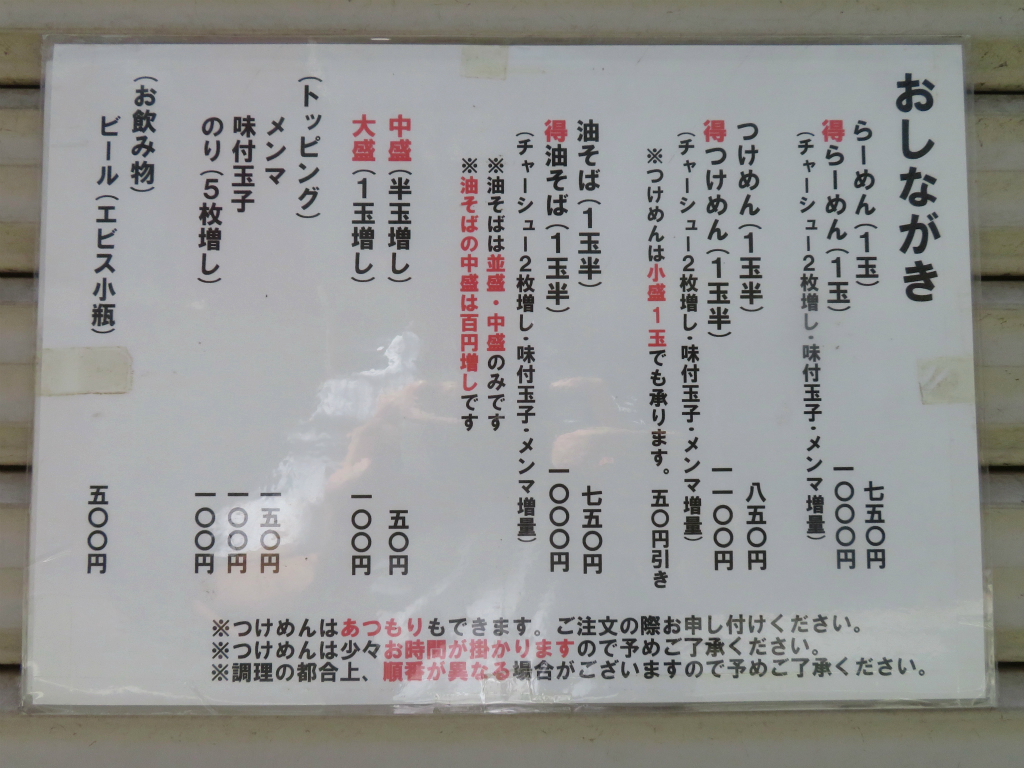 おしながき
らーめん（1玉） 七五〇円
得らーめん（1玉） 一〇〇〇円
（チャーシュー2枚増し・味付玉子・メンマ増量）
つけめん（1玉半） 八五〇円
得つけめん（1玉半） 一一〇〇円
（チャーシュー2枚増し・味付玉子・メンマ増量）
※つけめんは小盛1玉でも承ります。 五〇円引き
油そば（1玉半） 七五〇円
得油そば（1玉半） 一〇〇〇円
（チャーシュー2枚増し・味付玉子・メンマ増量）
※油そばは並盛・中盛のみです
※油そばの中盛は百円増しです
中盛（半玉増し） 五〇円
大盛（1玉増し） 一〇〇円
（トッピング）
メンマ 一五〇円
味付玉子 一〇〇円
のり（5枚増し） 一〇〇円
（お飲み物）
ビール（エビス小瓶） 五〇〇円
※つけめんはあつもりもできます。ご注文の際お申し付けください。
※つけめんは少々お時間が掛かりますので予めご了承ください。
※調理の都合上、順番が異なる場合がございますので予めご了承ください。